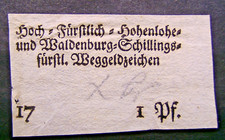 Hoch-Fürstlich-Hohenlohe-
und Waldenburg-Schillings-
fürstl. Weggeldzeichen
17 1 Pf.